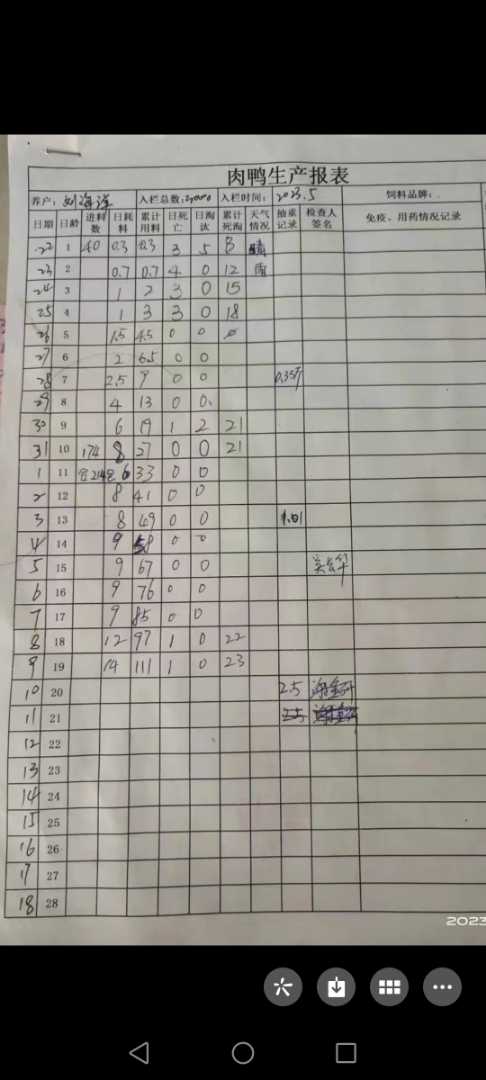 肉鸭生产报表
养户: 刘海洋 入栏总数: 入栏时间: 2023.5 饲料品牌:
日期 日龄 进料数 日耗料 累计用料 日死亡 日淘汰 累计死淘 天气情况 抽重记录 检查人签名 免疫、用药情况记录
22 1 40 0.3 0.3 3 5 8 晴
23 2 0.7 0.7 4 0 12 雨
24 3 1 2 3 0 15
25 4 1 3 3 0 18
26 5 1.5 4.5 0 0 0
27 6 2 6.5 0 0
28 7 2.5 9 0 0
29 8 4 13 0 0
30 9 6 19 1 2 21
31 10 174 8 27 0 0 21
1 11 6 33 0 0
2 12 8 41 0 0
3 13 8 49 0 0 1.01
4 14 9 58 0 0
5 15 9 67 0 0
6 16 9 76 0 0
7 17 9 85 0 0
8 18 12 97 1 0 22
9 19 14 111 1 0 23
10 20 2.5
11 21 2.5
12 22
13 23
14 24
15 25
16 26
17 27
18 28
2023